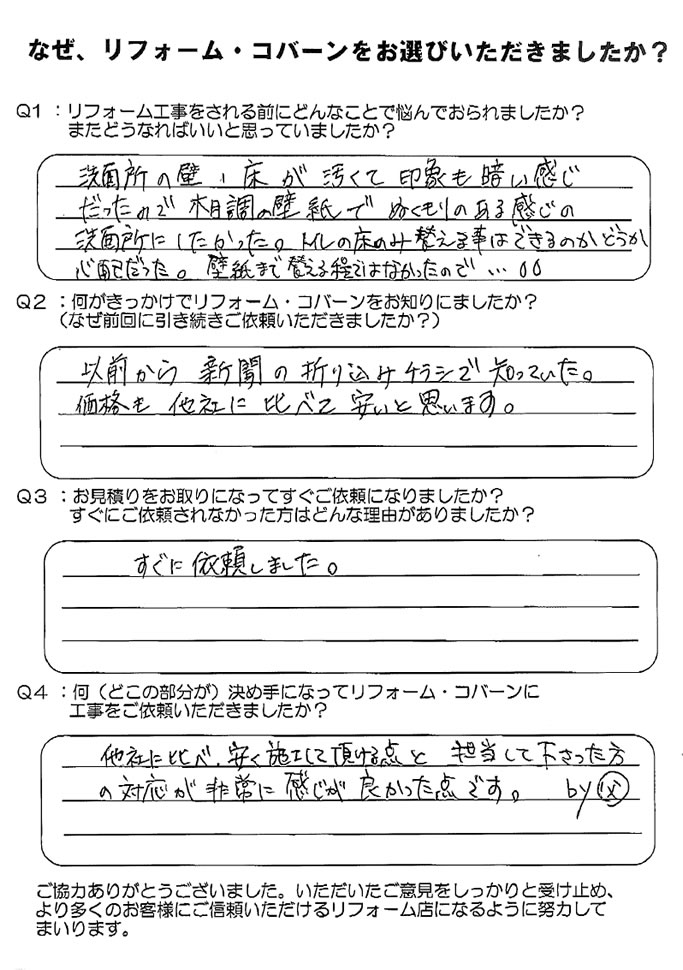 なぜ、リフォーム・コバーンをお選びいただきましたか？
Q1：リフォーム工事をされる前にどんなことで悩んでおられましたか？
またどうなればいいと思っていましたか？
洗面所の壁、床が汚くて印象も暗い感じ
だったので木目調の壁紙でぬくもりのある感じの
洗面所にしたかった。トイレの床のみ替える事はできるのかどうか
心配だった。壁紙まで替える程ではなかったので…
Q2：何がきっかけでリフォーム・コバーンをお知りにましたか？
（なぜ前回に引き続きご依頼いただきましたか？）
以前から新聞の折り込みチラシで知っていた。
価格も他社に比べて安いと思います。
Q3：お見積りをお取りになってすぐご依頼になりましたか？
すぐにご依頼されなかった方はどんな理由がありましたか？
すぐに依頼しました。
Q4：何（どこの部分が）決め手になってリフォーム・コバーンに
工事をご依頼いただきましたか？
他社に比べ、安く施工して頂ける点と担当して下さった方
の対応が非常に感じが良かった点です。 by
ご協力ありがとうございました。いただいたご意見をしっかりと受け止め、
より多くのお客様にご信頼いただけるリフォーム店になるように努力して
まいります。